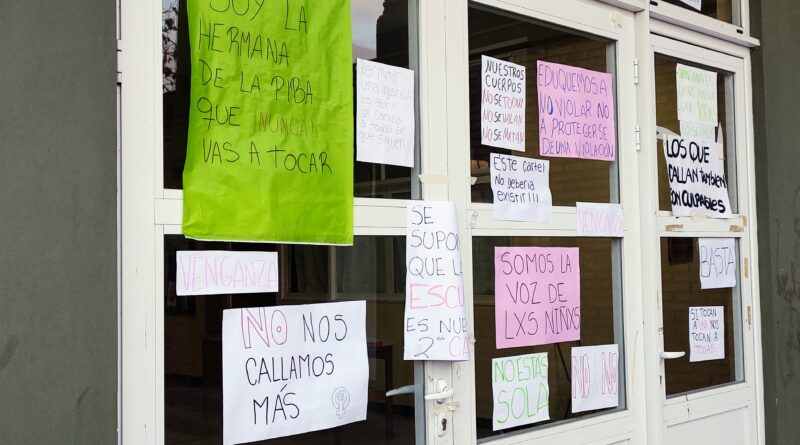 SOY LA
HERMANA
DE LA PIBA
QUE ¡NUNCA!
VAS A TOCAR
PERMITIR
UNA INJUSTICIA
ES ABRIR
EL CAMINO
A TODAS LAS
QUE SIGUEN
NUESTROS
CUERPOS
NO SE TOCAN
NO SE VIOLAN
NO SE MATAN
EDUQUEMOS A
NO VIOLAR NO
A PROTEGERSE
DE UNA VIOLACIÓN
ESTE CARTEL
NO DEBERÍA
EXISTIR!!!
VENGANZA
SE
SUPO
QUE LA
ESCU
ES NUE
2ᵈᵃ CA
NO NOS
CALLAMOS
MÁS
SOMOS LA
VOZ DE
LXS NIÑXS
NO ESTÁS
SOLA
NO
NO
LOS QUE
CALLAN TAMBIÉN
SON CULPABLES
BASTA
SI TOCAN
A UNA NOS
TOCAN A
TODAS